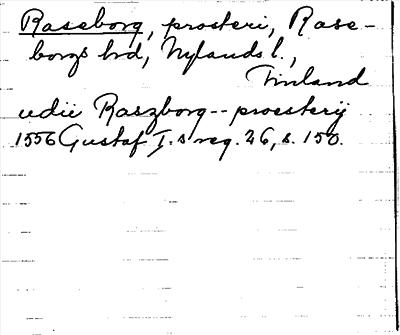 Raseborg, prosteri, Rase-
borgs hrd, Nylands l.,
Finland
udii Raszborg--proesterij
1556 Gustaf I.s reg. 26, s. 150.